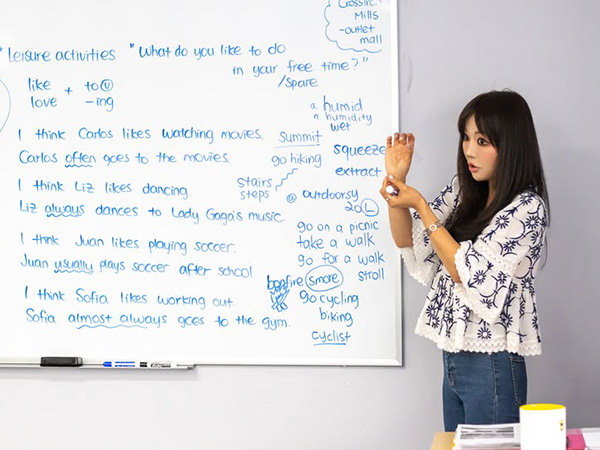 Crosslin
Mills
-outlet
mall
"leisure activities "What do you like to do
in your free time?"
/spare
like + to Ⓥ
love -ing
a. humid
n. humidity
wet
I think Carlos likes watching movies.
Carlos often goes to the movies.
I think Liz likes dancing.
Liz always dances to Lady Gaga's music.
I think Juan likes playing soccer.
Juan usually plays soccer after school
I think Sofia likes working out.
Sofia almost always goes to the gym.
summit
go hiking
stairs
steps
squeeze
extract
@ outdoorsy
20 L
go on a picnic
take a walk
go for a walk
stroll
bonfire smore
go cycling
biking
cyclist